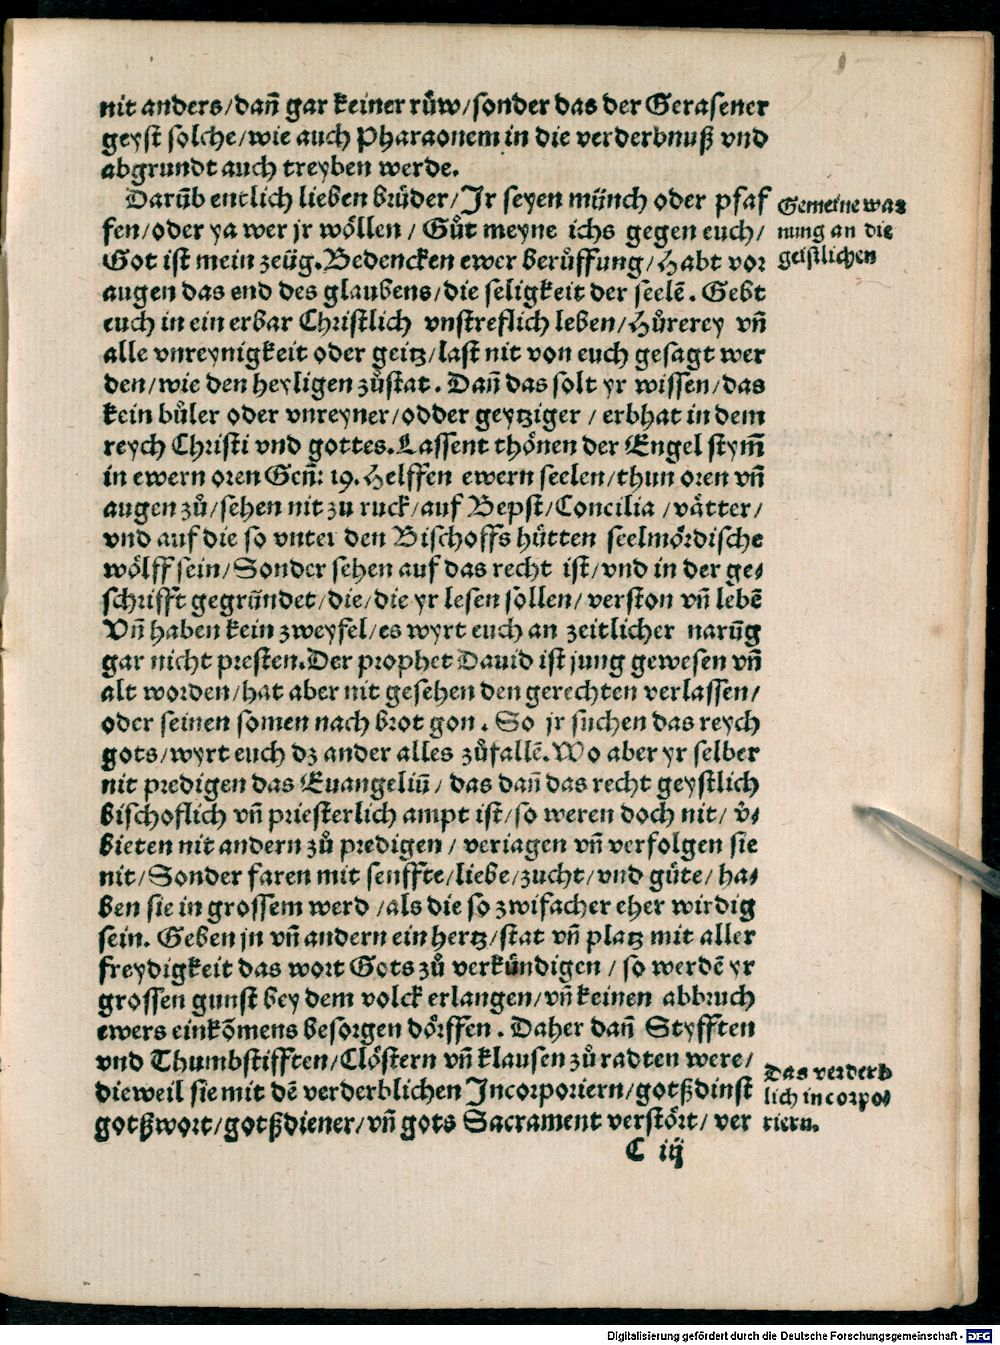 nit anders/dañ gar keiner růw/sonder das der Gerasener
geyst solche/wie auch Pharaonem in die verderbnuß vnd
abgrundt auch treyben werde.
Darūb entlich lieben brüder/Jr seyen münch oder pfaf
fen/oder ya wer jr wöllen/ Gůt meyne ichs gegen euch/
Got ist mein zeüg.Bedencken ewer berůffung/Habt vor
augen das end des glaubens/die seligkeit der seelē. Gebt
euch in ein erbar Christlich vnstreflich leben/Hůrerey vñ
alle vnreynigkeit oder geitz/last nit von euch gesagt wer
den/wie den heyligen zůstat. Dañ das solt yr wissen/das
kein bůler oder vnreyner/odder geytziger/ erbhat in dem
reych Christi vnd gottes.Lassent thönen der Engel stym̄
in ewern oren Geñ: 19. Helffen ewern seelen/thun oren vñ
augen zů/sehen nit zu ruck/auf Bepst/Concilia/vätter/
vnd auf die so vnter den Bischoffs hütten seelmördische
wölff sein/Sonder sehen auf das recht ist/vnd in der ge⸗
schrifft gegründet/die/die yr lesen sollen/verston vñ lebē
Vñ haben kein zweyfel/es wyrt euch an zeitlicher narūg
gar nicht presten.Der prophet Dauid ist jung gewesen vñ
alt worden/hat aber nit gesehen den gerechten verlassen/
oder seinen somen nach brot gon. So jr suchen das reych
gots/wyrt euch dz ander alles zůfallē.Wo aber yr selber
nit predigen das Euangeliū/ das dañ das recht geystlich
bischoflich vñ priesterlich ampt ist/so weren doch nit/ v̇⸗
bieten nit andern zů predigen/ veriagen vñ verfolgen sie
nit/Sonder faren mit senffte/liebe/zucht/vnd güte/ ha⸗
ben sie in grossem werd/als die so zwifacher eher wirdig
sein. Geben jn vñ andern ein hertz/stat vñ platz mit aller
freydigkeit das wort Gots zů verkündigen/ so werdē yr
grossen gunst bey dem volck erlangen/vñ keinen abbruch
ewers einkōmens besorgen dörffen. Daher dañ Styfften
vnd Thumbstifften/Clöstern vñ klausen zů radten were/
dieweil sie mit dē verderblichen Incorporiern/gotßdinst
gotßwort/gotßdiener/vñ gots Sacrament verstört/ ver
C iij
Gemeine war
nung an die
geistlichen
Das verderb
lich incorpo⸗
riern.
Digitalisierung gefördert durch die Deutsche Forschungsgemeinschaft - DFG